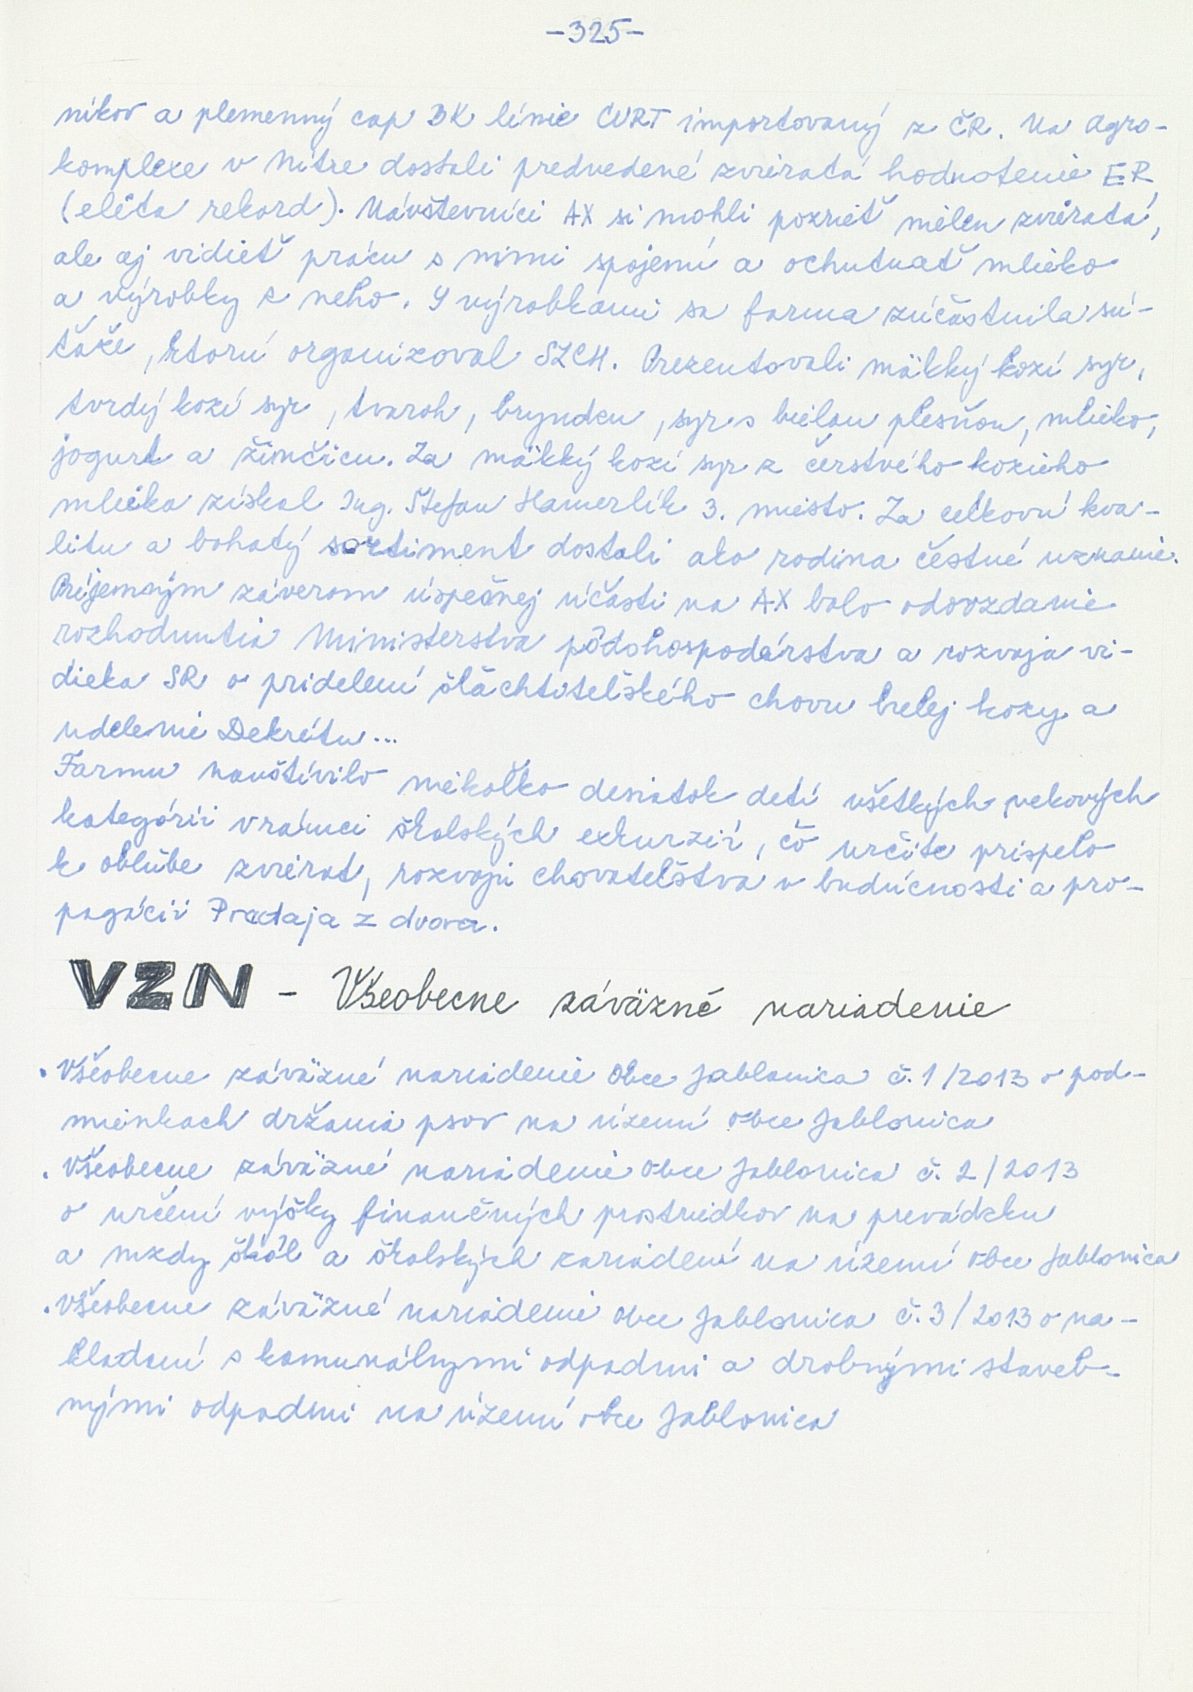 -325-
níkov a plemenný cap BK línie CVRT importovaný z ČR. Na Agro-
komplexe v Nitre dostali predvedené zvieratá hodnotenie ER
(eléta rekord). Návštevníci AX si mohli pozrieť nielen zvieratá,
ale aj vidieť prácu s nimi spojenú a ochutnať mlieko
a výrobky z neho. S výrobkami sa farma zúčastnila sú-
ťaže, ktorú organizoval SZCH. Prezentovali mäkký kozí syr,
tvrdý kozí syr, tvaroh, bryndzu, syr s bielou plesňou, mlieko,
jogurt a žinčicu. Za mäkký kozí syr z čerstvého kozieho
mlieka získal Ing. Štefan Hamerlík 3. miesto. Za celkovú kva-
litu a bohatý sortiment dostali ako rodina čestné uznanie.
Príjemným záverom úspešnej účasti na AX bolo odovzdanie
rozhodnutia Ministerstva pôdohospodárstva a rozvoja vi-
dieka SR o pridelení šľachtiteľského chovu bielej kozy a
udelenie Dekrétu...
Farmu navštívilo niekoľko desiatok detí všetkých vekových
kategórií v rámci školských exkurzií, čo určite prispelo
k obľube zvierat, rozvoju chovateľstva v budúcnosti a pro-
pagácii Predaja z dvora.
VZN - Všeobecne záväzné nariadenie
. Všeobecne záväzné nariadenie Obce Jablonica č. 1/2013 o pod-
mienkach držania psov na území obce Jablonica
. Všeobecne záväzné nariadenie Obce Jablonica č. 2/2013
o určení výšky finančných prostriedkov na prevádzku
a mzdy škôl a školských zariadení na území obce Jablonica
. Všeobecne záväzné nariadenie obce Jablonica č. 3/2013 o na-
kladaní s komunálnymi odpadmi a drobnými staveb-
nými odpadmi na území obce Jablonica